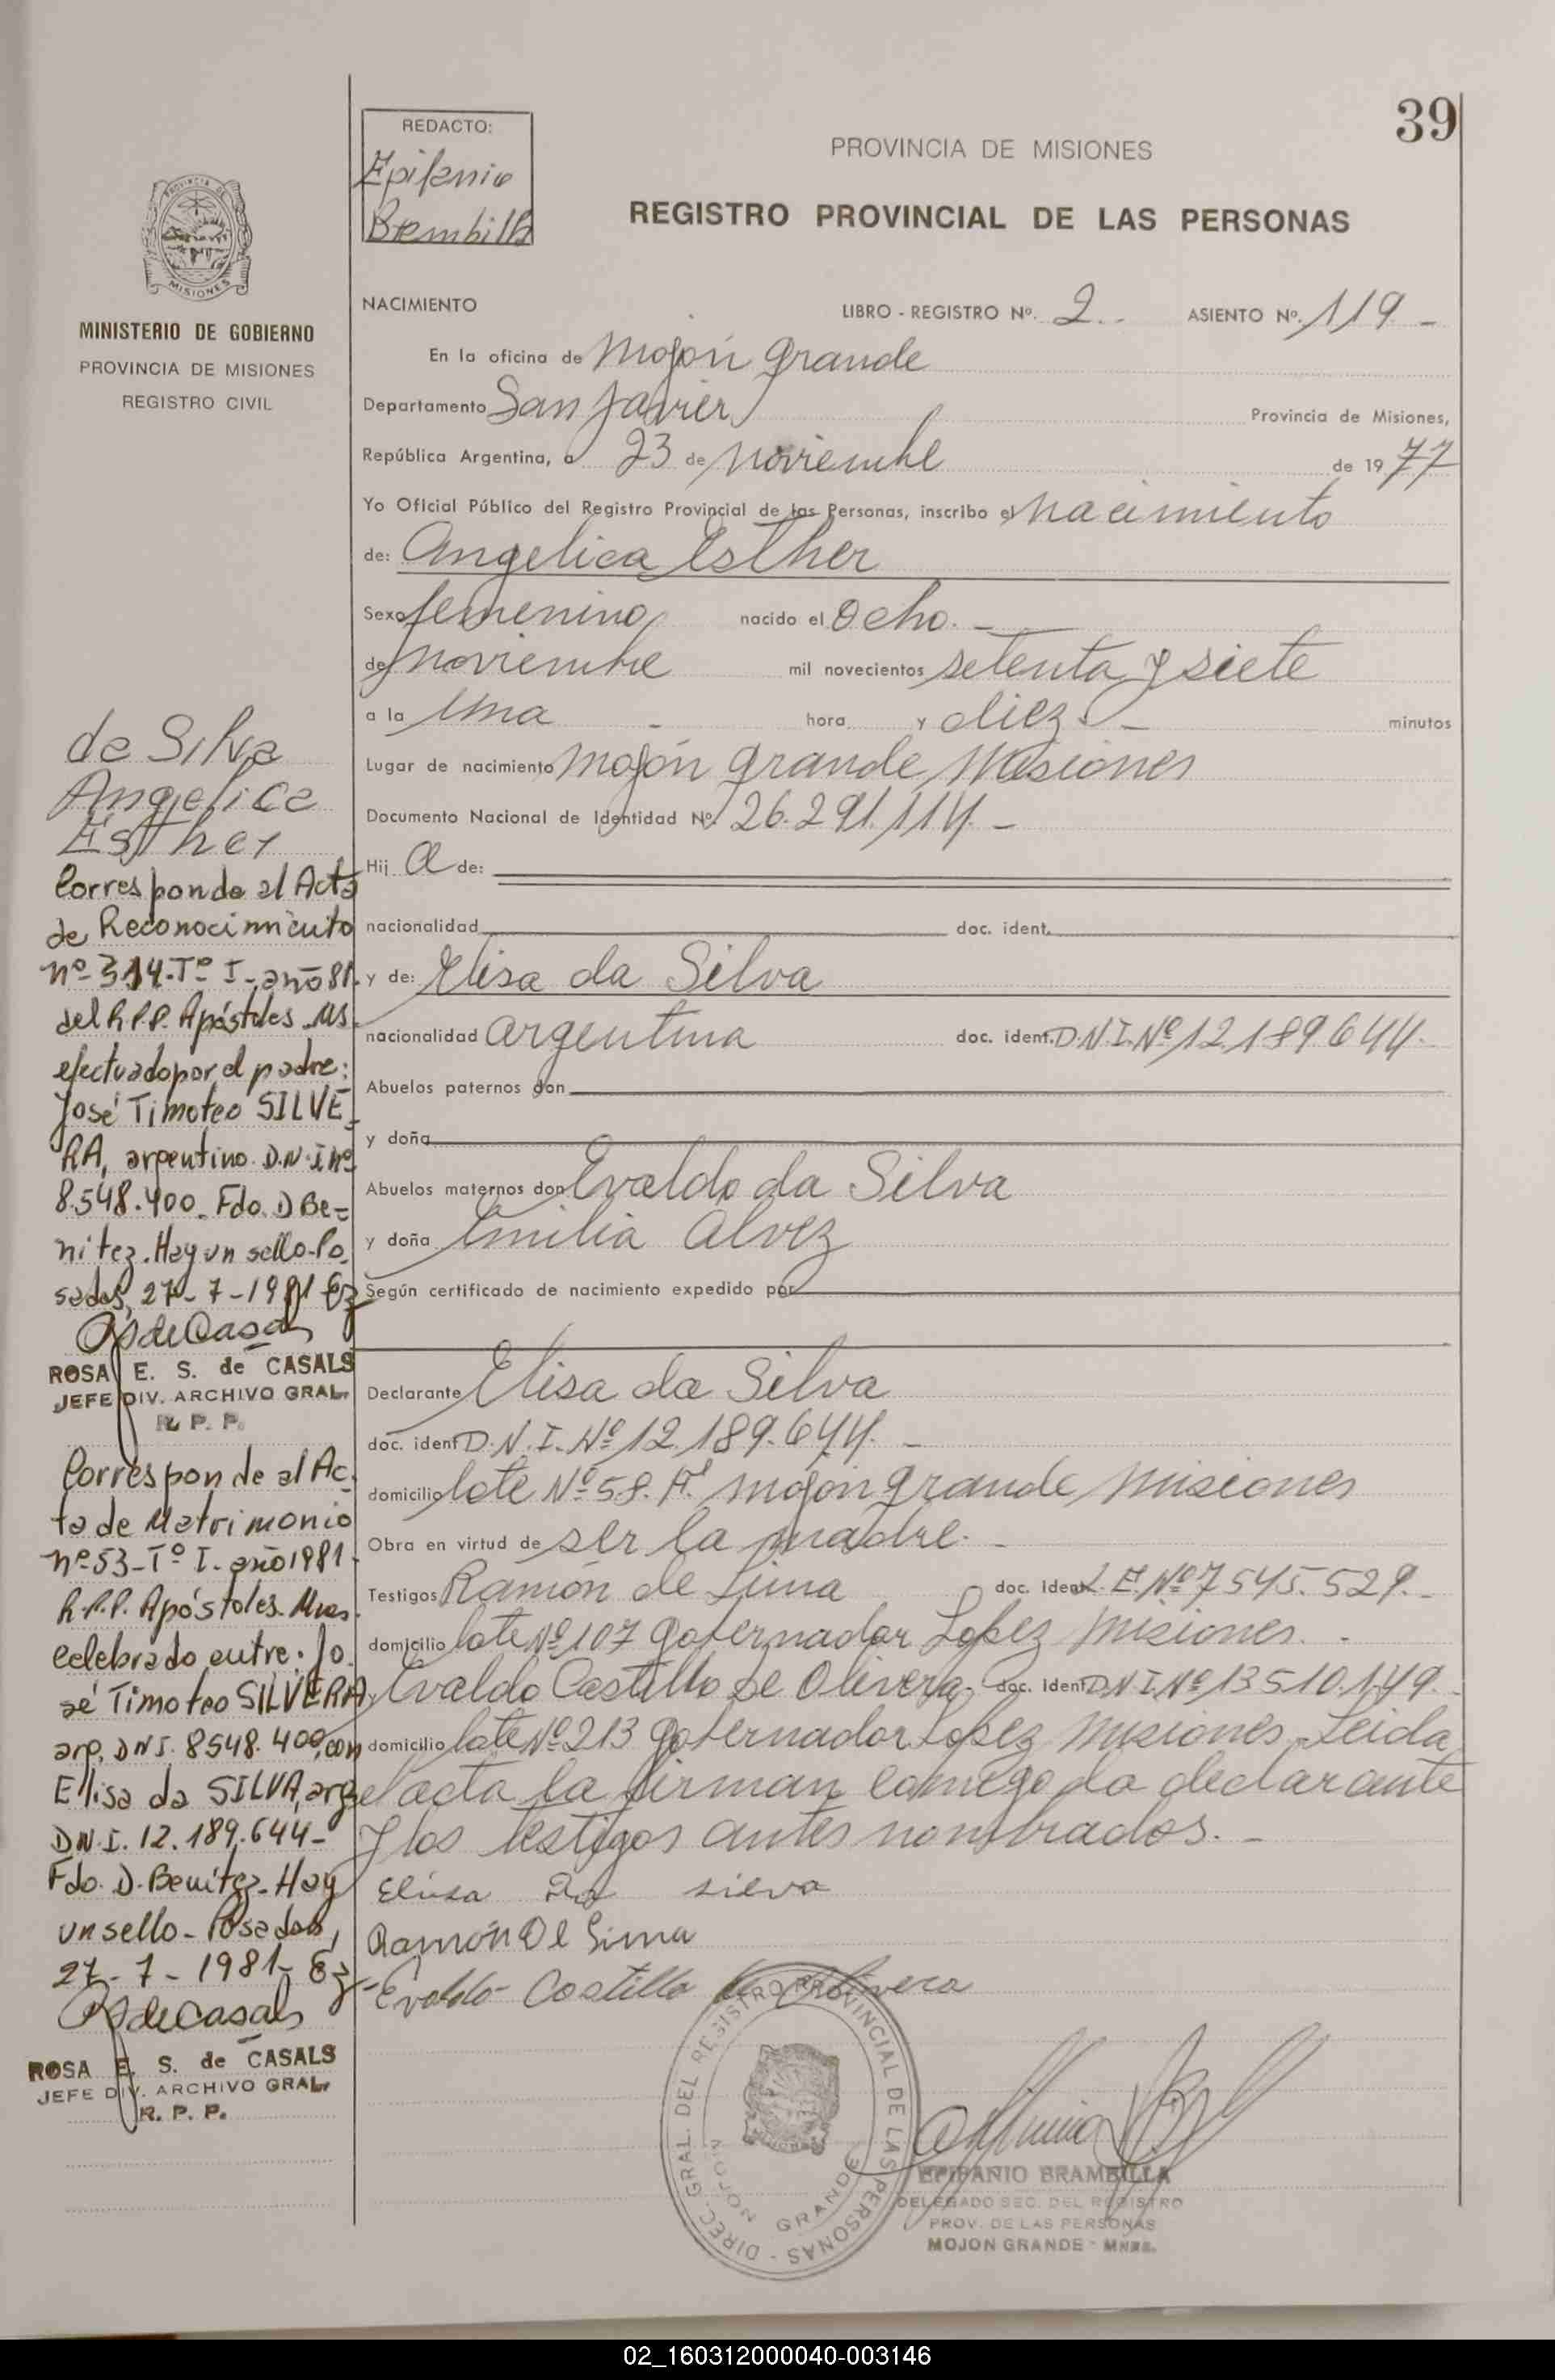 39
REDACTO:
Epifanio
Brambilla
PROVINCIA DE MISIONES
REGISTRO PROVINCIAL DE LAS PERSONAS
MISIONES
MINISTERIO DE GOBIERNO
PROVINCIA DE MISIONES
REGISTRO CIVIL
NACIMIENTO
LIBRO - REGISTRO Nº. 2.- ASIENTO Nº. 119.-
En la oficina de Mojón grande
Departamento San Javier Provincia de Misiones,
República Argentina, a 23 de Noviembre de 1977
Yo Oficial Público del Registro Provincial de las Personas, inscribo el Nacimiento
de: Angelica Esther
Sexo femenino nacido el Ocho.-
de Noviembre mil novecientos setenta y siete
a la Una - hora y diez.- minutos
Lugar de nacimiento Mojón grande Misiones
Documento Nacional de Identidad Nº 26.291.114.-
Hij a de:
nacionalidad doc. ident.
y de: Elisa da Silva
nacionalidad argentina doc. ident. D.N.I.Nº 12.189.644.-
Abuelos paternos don
y doña
Abuelos maternos don Evaldo da Silva
y doña Emilia Alvez
Según certificado de nacimiento expedido por
Declarante Elisa da Silva
doc. ident D.N.I.Nº 12.189.644.-
domicilio lote Nº 58. Mojón grande Misiones
Obra en virtud de ser la madre.-
Testigos Ramón de Lima doc. Ident L.E.Nº 7545.529.-
domicilio lote Nº 107 gobernador Lopez Misiones.-
Evaldo Castillo de Olivera. doc. Ident D.N.I.Nº 13510.149.-
domicilio lote Nº 213 gobernador Lopez Misiones. Leida
el acta la firman comigo la declarante
y los testigos antes nombrados.-
Elisa Da silva
Ramón De Lima
Evaldo Costillo de Olivera
DIREC. GRAL. DEL REGISTRO PROVINCIAL DE LAS PERSONAS -
MOJON GRANDE
EPIFANIO BRAMBILLA
DELEGADO SEC. DEL REGISTRO
PROV. DE LAS PERSONAS
MOJON GRANDE - MNES.
da Silva
Angelica
Esther
Corresponde al Acta
de Reconocimiento
nº 314-Tº I-año 81.
del R.P.P. Apóstoles Ms
efectuado por el padre:
José Timoteo SILVE-
RA, argentino. D.N.I nº
8.548.400. Fdo. D Be-
nitez. Hay un sello-Po-
sadas, 27-7-1981
RSdeCasals
ROSA E. S. de CASALS
JEFE DIV. ARCHIVO GRAL.
R. P. P.
Corresponde al Ac-
ta de Matrimonio
nº 53-Tº I-año 1981-
R.P.P. Apóstoles. Mnes.
celebrado entre. Jo-
sé Timoteo SILVERA,
arg. DNI. 8548.400, con
Elisa da SILVA, arg
DN.I. 12.189.644-
Fdo. D. Benítez. Hay
un sello-Posadas,
27-7-1981-
RSdeCasals
ROSA E. S. de CASALS
JEFE DIV. ARCHIVO GRAL.
R. P. P.
02_160312000040-003146